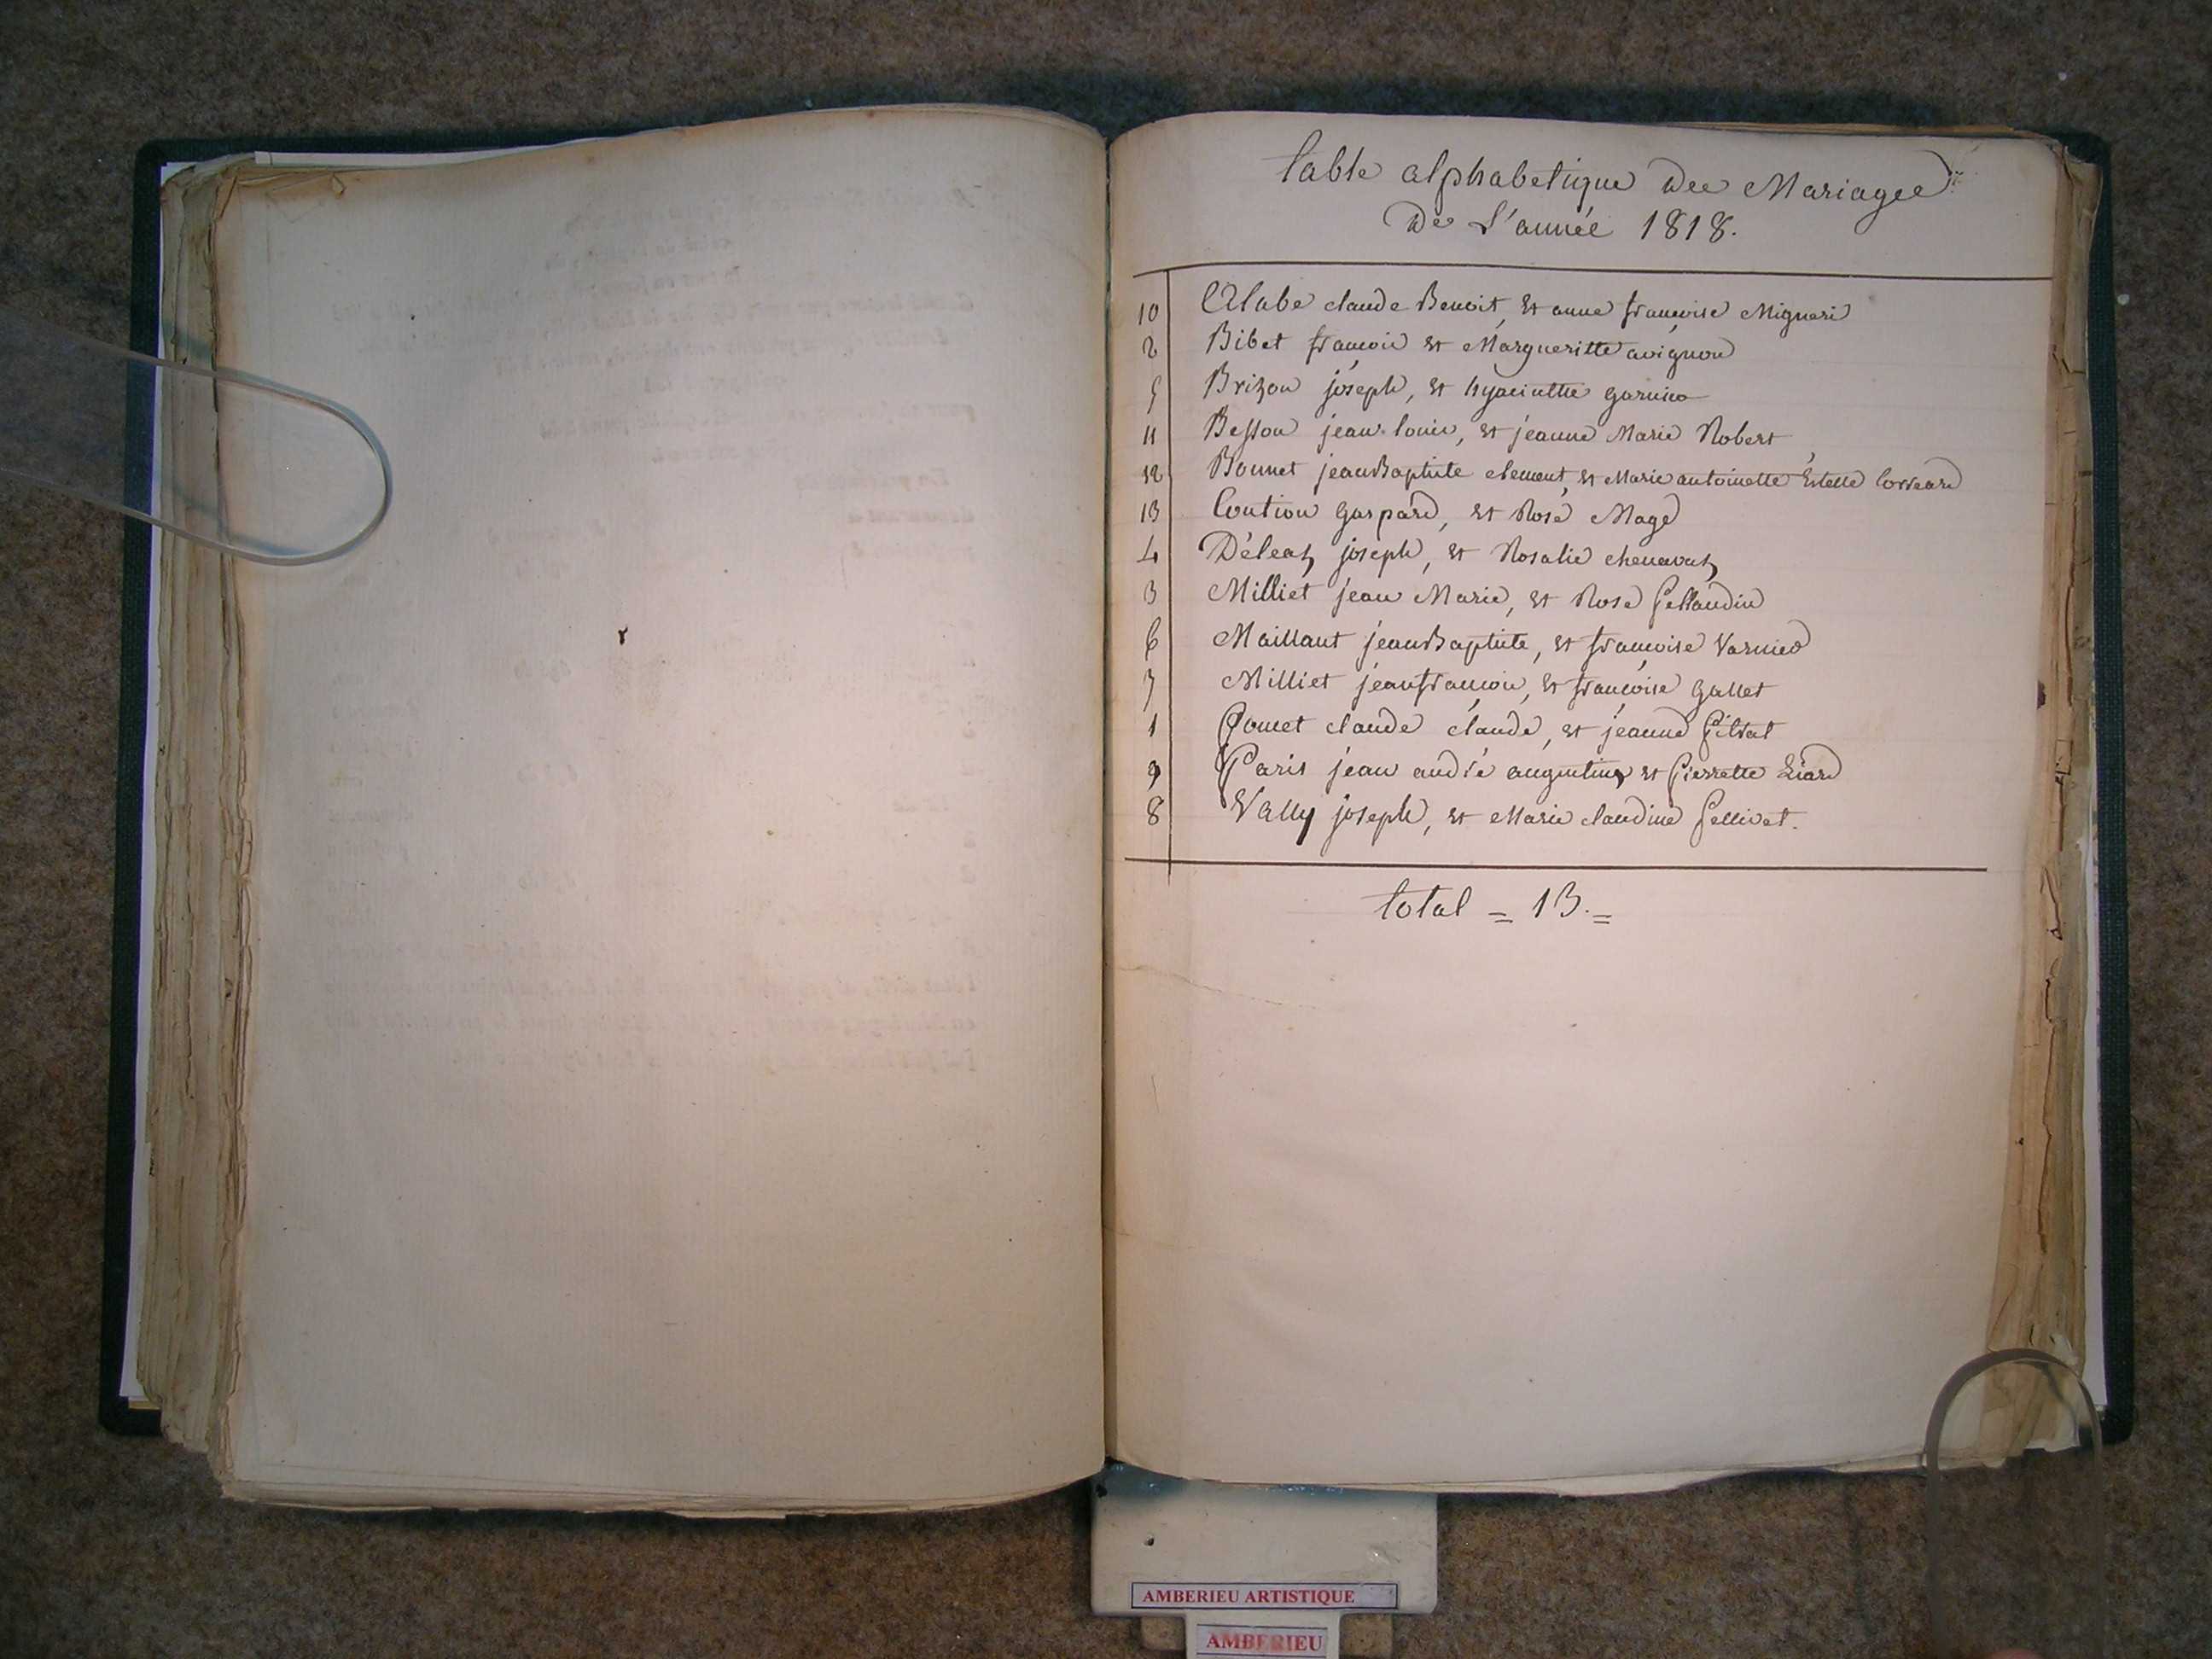 table alphabetique Des Mariages
De L'année 1818.
10 Alabe claude Benoit, et anne françoise Migneri
2 Bibet françois et Margueritte avignon
5 Brizon joseph, et hyacinthe garnier
11 Besson jean louis, et jeanne Marie Robert
12 Bonnet jean Baptiste clement, et Marie antoinette Estelle Correard
13 Coution Gaspard, et Rose Mage
4 Déléaz joseph, et Rosalie chenavaz
3 Milliet jean Marie, et Rose Pellandin
6 Maillant jean Baptiste, et françoise Varnied
7 Milliet jean françois, et françoise Gallet
1 Poncet claude claude, et jeanne Pitrat
9 Paris jean andré augustin, et Pierrette Liard
8 Vally joseph, et Marie claudine Pellivet.
total = 13. =
AMBERIEU ARTISTIQUE
AMBERIEU